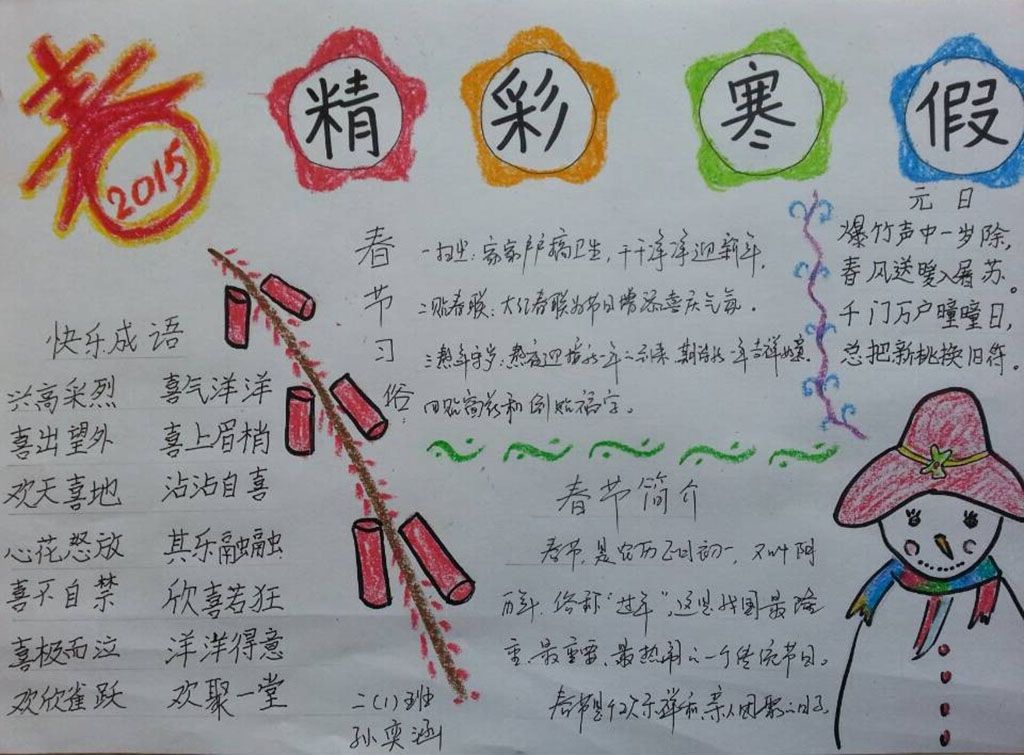 春
2015
精彩寒假
元日
爆竹声中一岁除，
春风送暖入屠苏。
千门万户曈曈日，
总把新桃换旧符。
春节习俗
一扫尘：家家户户搞卫生，干干净净迎新年，
二贴春联：大红春联为节日增添喜庆气氛。
三熬年守岁：熬夜迎接新年的到来，期待新年吉祥如意
四贴窗花和倒贴福字。
快乐成语
兴高采烈 喜气洋洋
喜出望外 喜上眉梢
欢天喜地 沾沾自喜
心花怒放 其乐融融
喜不自禁 欣喜若狂
喜极而泣 洋洋得意
欢欣雀跃 欢聚一堂
春节简介
春节，是农历正月初一，又叫阴
历年，俗称“过年”，这是我国最隆
重、最重要、最热闹的一个传统节日。
春节是个欢乐祥和、亲人团聚的日子
二（1）班
孙奕涵